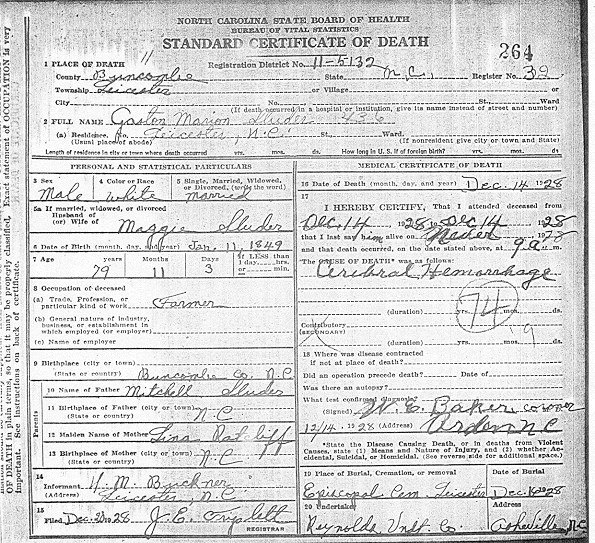 NORTH CAROLINA STATE BOARD OF HEALTH
BUREAU OF VITAL STATISTICS
STANDARD CERTIFICATE OF DEATH
264
1 PLACE OF DEATH 11
Registration District No. 11-5132
County Buncombe State N.C. Register No. 32
Township Leicester or Village or
City No. St., Ward
(If death occurred in a hospital or institution, give its name instead of street and number)
2 FULL NAME Gaston Marion Sluder 436
(a) Residence. No. Leicester, N.C. St., Ward.
(Usual place of abode) (If nonresident give city or town and State)
Length of residence in city or town where death occurred yrs. mos. ds. How long in U. S. if of foreign birth? yrs. mos. ds.
PERSONAL AND STATISTICAL PARTICULARS
3 Sex 4 Color or Race 5 Single, Married, Widowed, or Divorced, (write the word)
Male White married
5a If married, widowed, or divorced
Husband of
(or) Wife of Maggie Sluder
6 Date of Birth (month, day, and year) Jan. 11, 1849
7 Age years Months Days If LESS than 1 day, hrs. or min.
79 11 3
8 Occupation of deceased
(a) Trade, Profession, or particular kind of work Farmer
(b) General nature of industry, business, or establishment in which employed (or employer)
(c) Name of employer
9 Birthplace (city or town)
(State or country) Buncombe Co. N.C.
Parents
10 Name of Father Mitchell Sluder
11 Birthplace of Father (city or town)
(State or country) N.C
12 Maiden Name of Mother Lina Ratcliff
13 Birthplace of Mother (city or town)
(State or country) N.C
14 Informant H. M. Buckner
(Address) Leicester N.C.
15 Filed Dec. 1928 J. E. Triplett
REGISTRAR
MEDICAL CERTIFICATE OF DEATH
16 Date of Death (month, day, and year) Dec. 14 1928
17
I HEREBY CERTIFY, That I attended deceased from
Dec. 14 1928 to Dec 14 1928
that I last saw him alive on 1928
and that death occurred, on the date stated above, at 9 a. m.
The CAUSE OF DEATH* was as follows:
Cerebral Hemorrhage
74
(duration) yrs. mos. ds.
Contributory
(SECONDARY)
(duration) yrs. mos. ds.
18 Where was disease contracted
if not at place of death?
Did an operation precede death? Date of
Was there an autopsy?
What test confirmed diagnosis?
(Signed) W. E. Baker coroner
12/14 1928 (Address) Arden N C
*State the Disease Causing Death, or in deaths from Violent Causes, state (1) Means and Nature of Injury, and (2) whether Accidental, Suicidal, or Homicidal. (See reverse side for additional space.)
19 Place of Burial, Cremation, or removal Date of Burial
Episcopal Cem Leicester Dec. 1928
20 Undertaker Address
Reynolds Undt. Co. Asheville, N.C.
OF DEATH in plain terms, so that it may be properly classified. Exact statement of OCCUPATION is very
important. See instructions on back of certificate.